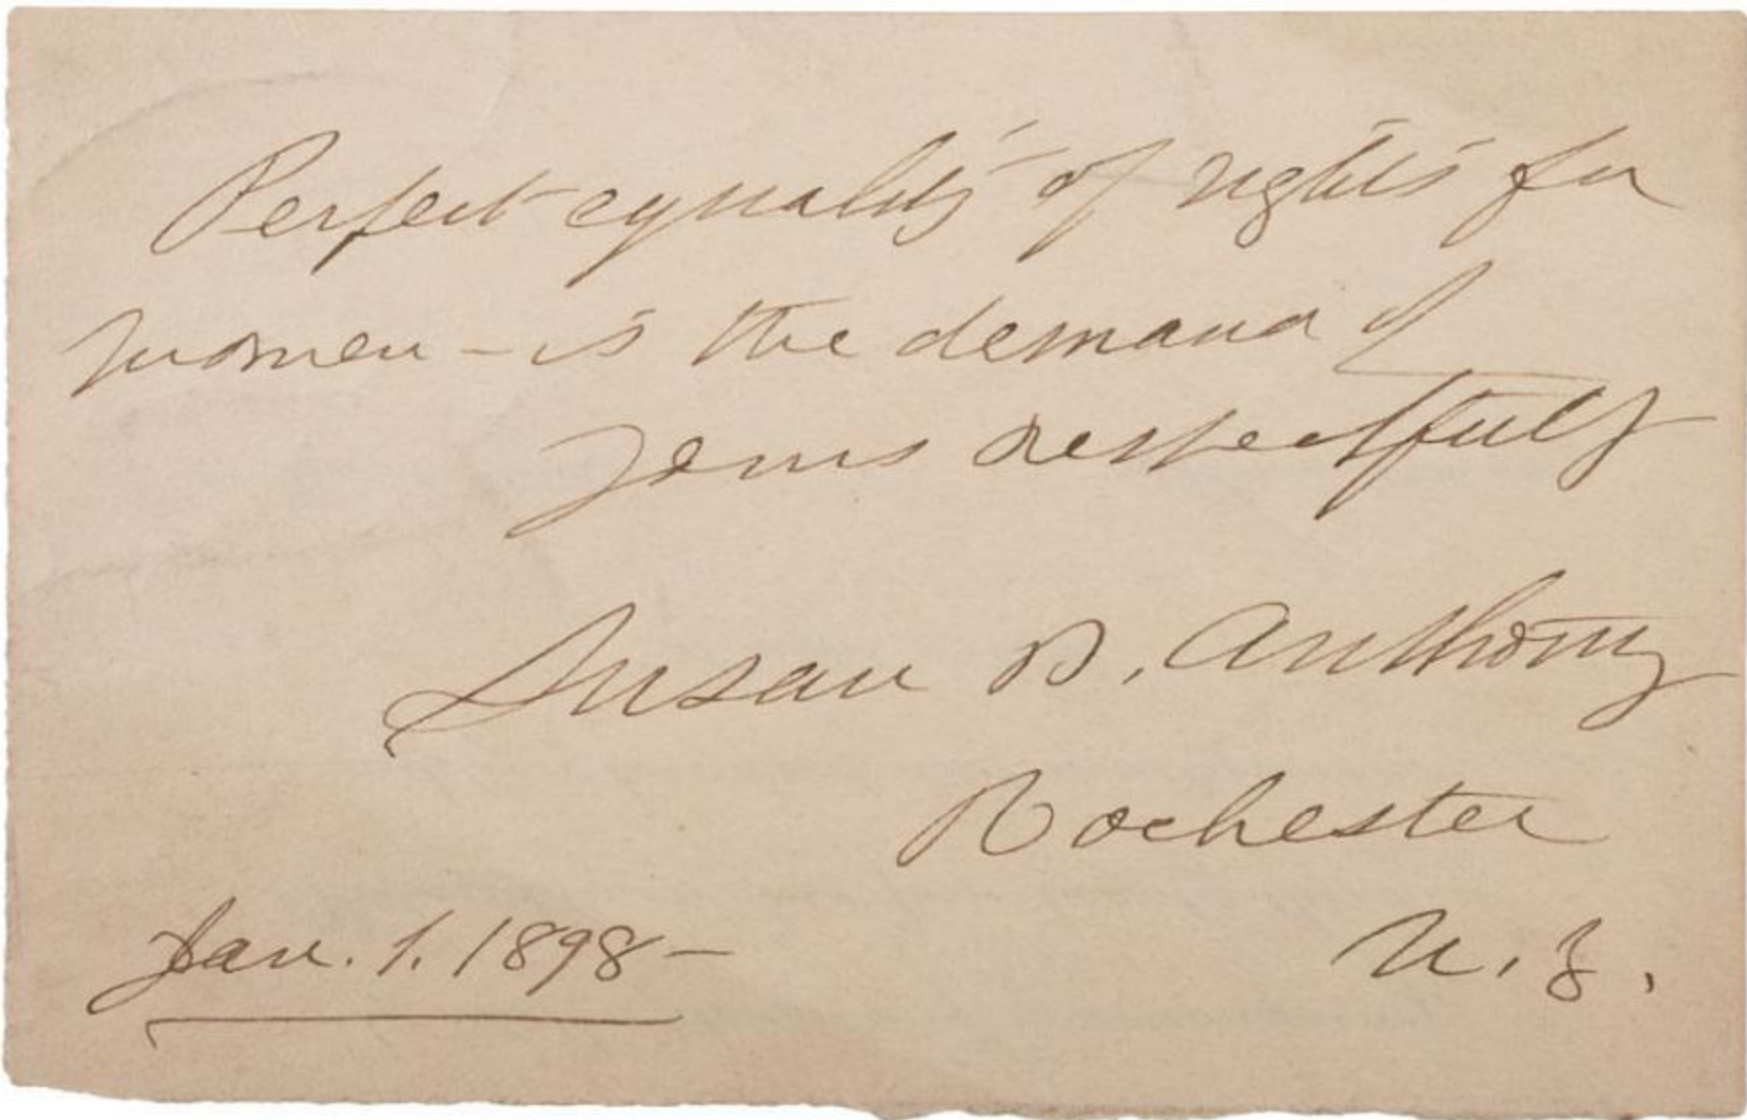 Perfect equality of rights for
women – is the demand of
yours respectfully
Susan B. Anthony
Rochester
N.Y.
Jan. 1. 1898 –